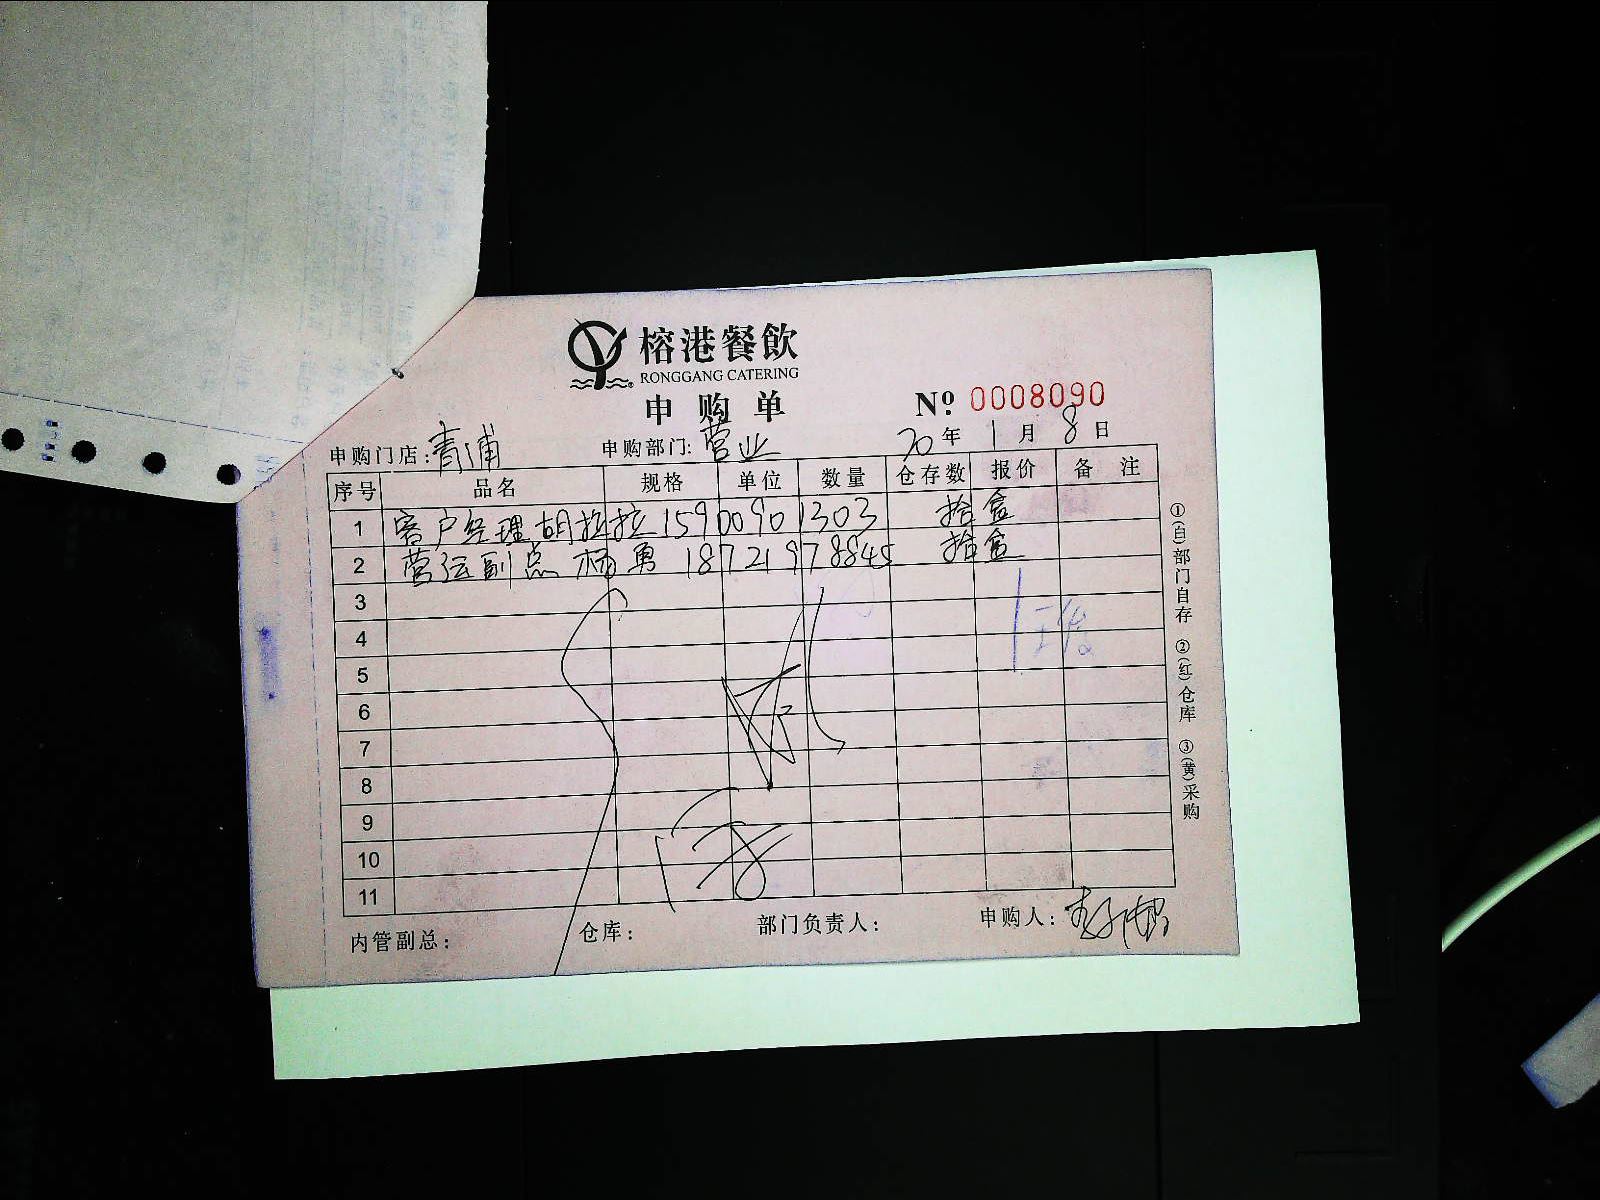 榕港餐飲
RONGGANG CATERING
申购单
№ 0008090
申购门店:青浦 申购部门:营业 20年1月8日
序号 品名 规格 单位 数量 仓存数 报价 备注
1 客户经理 胡拉拉 15900901303 拾盒
2 营运副总 杨勇 18721978845 拾盒
3
4
5
6
7
8
9
10
11
内管副总: 仓库: 部门负责人: 申购人:
①(白)部门自存 ②(红)仓库 ③(黄)采购